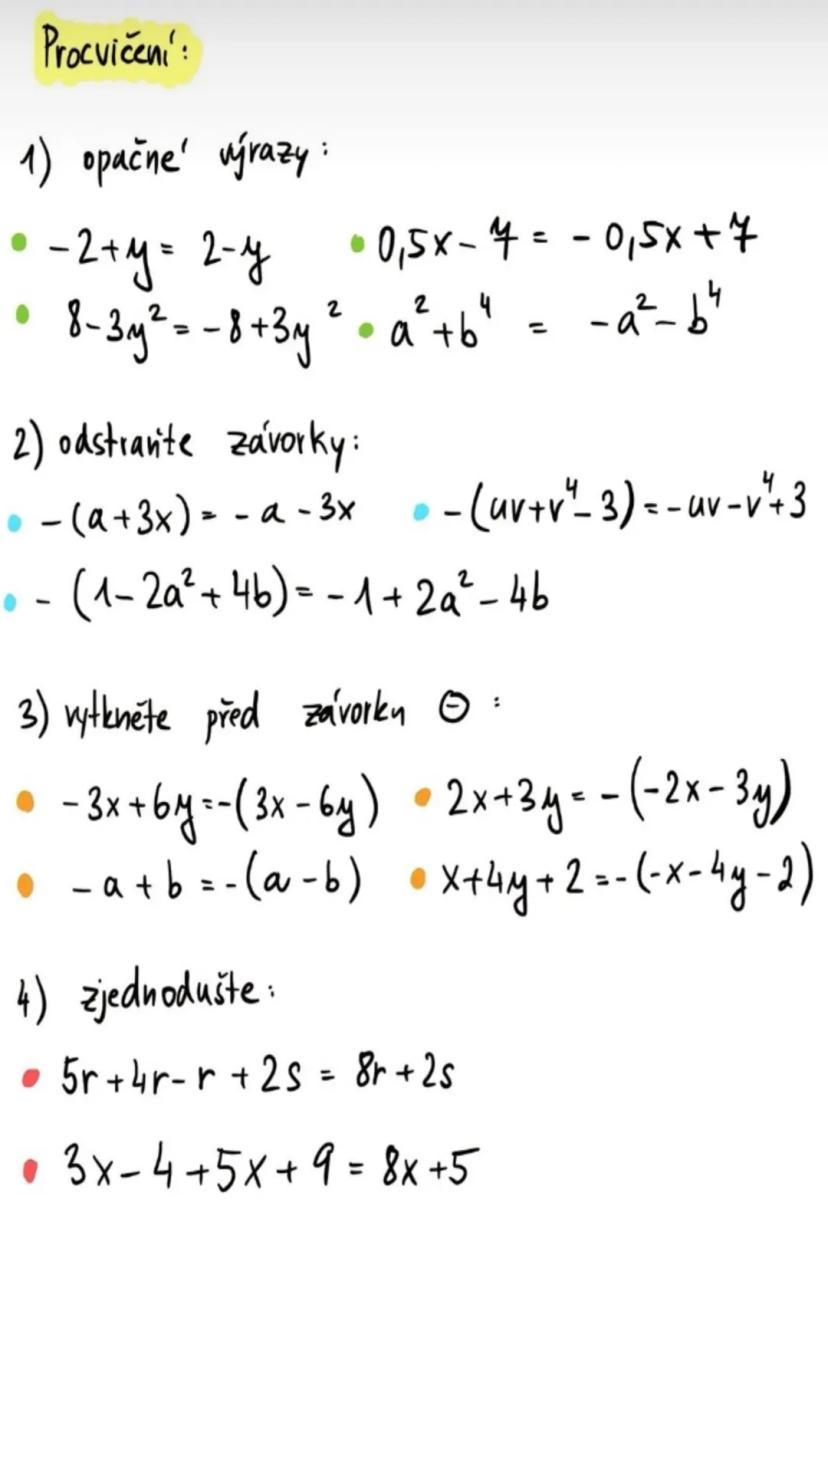 Procvičení:
1) opačné výrazy:
• -2+y = 2-y • 0,5x - 7 = - 0,5x + 7
• 8-3y² = -8+3y² • a²+b⁴ = -a²-b⁴
2) odstraňte závorky:
• -(a+3x) = - a - 3x • -(uv+v⁴-3) = -uv-v⁴+3
• - (1-2a²+4b) = -1+2a²-4b
3) vytkněte před závorku ⊖ :
• -3x+6y = -(3x-6y) • 2x+3y = -(-2x-3y)
• -a+b = -(a-b) • x+4y+2 = -(-x-4y-2)
4) zjednodušte:
• 5r+4r-r+2s = 8r+2s
• 3x-4+5x+9 = 8x+5